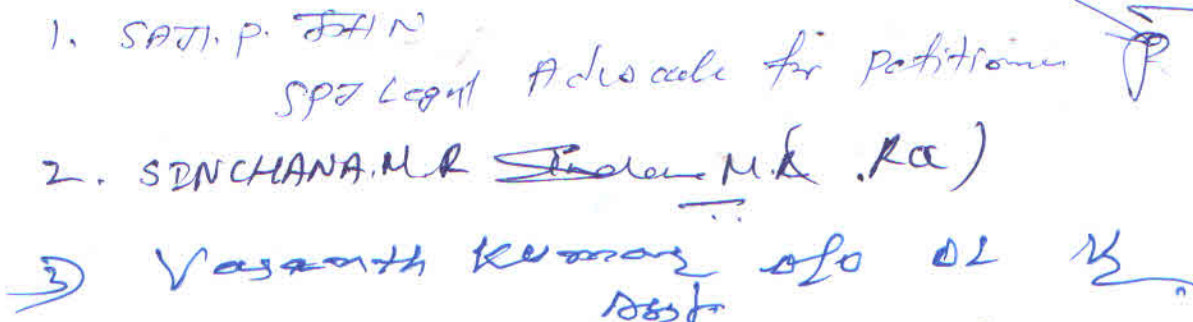 1. SAJI. P. JOHN
SPJ Legal Advocate for petitioner
2. SINCHANA.M.R M.R
3) Vasanth Kumar o/o OL
Asst